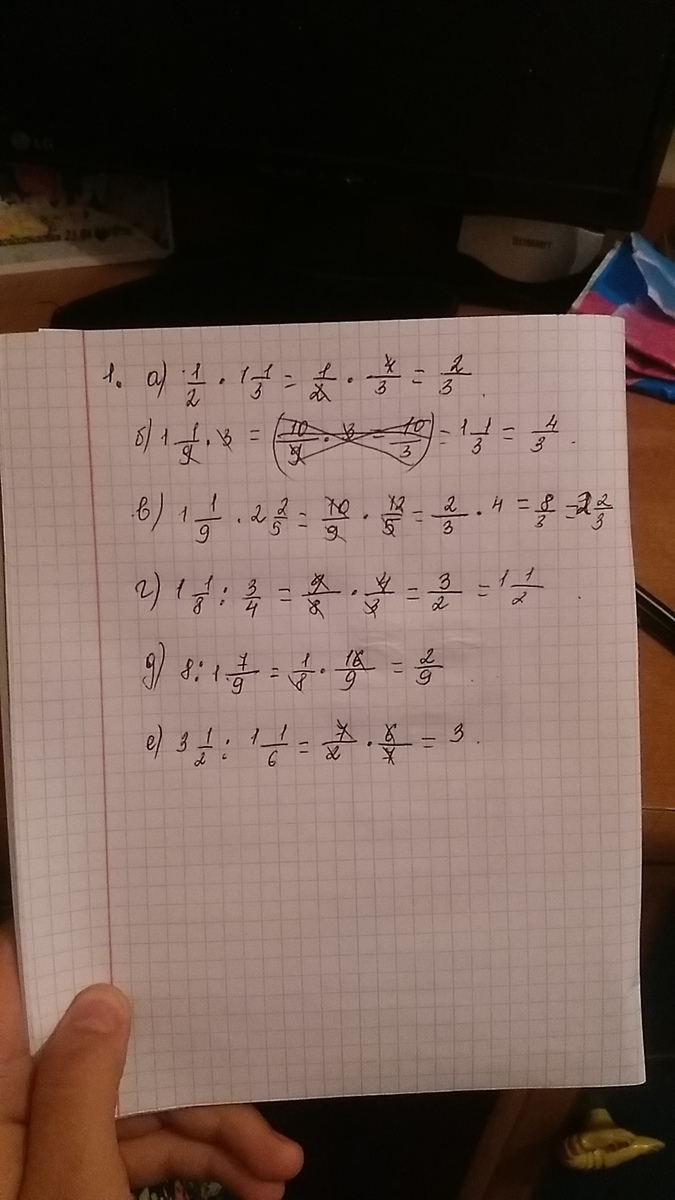 LG
SUMMIT
1. а) 1/2 · 1 1/3 = 1/2 · 4/3 = 2/3.
б) 1 1/9 · 3 = (10/9 · 3 = 10/3) = 1 1/3 = 4/3.
в) 1 1/9 · 2 2/5 = 10/9 · 12/5 = 2/3 · 4 = 8/3 = 2 2/3
г) 1 1/8 : 3/4 = 9/8 · 4/3 = 3/2 = 1 1/2.
д) 8 : 1 7/9 = 1/8 · 16/9 = 2/9.
е) 3 1/2 : 1 1/6 = 7/2 · 6/7 = 3.